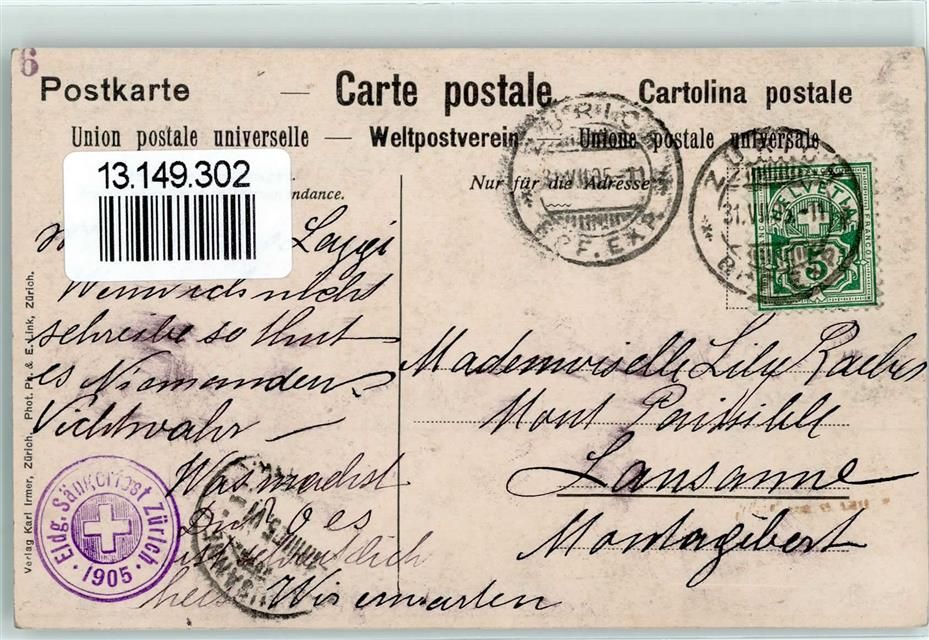 6
Postkarte — Carte postale Cartolina postale
Union postale universelle — Weltpostverein Unione postale universale
13.149.302
ndance.
Nur für die Adresse
ZÜRICH
31.VII.05.-11
BRF. EXP.
ZÜRICH
31.VII.05.-11
HELVETIA
5
Wenn ich nicht
schreibe so thut
es Niemanden
Nichtwahr —
Was machst
Du? O es
heiss Wir erwarten
Mademoiselle Lily
Mont Paisible
Lausanne
Montagibert
Eidg. Sängerfest Zürich
· 1905 ·
LAUSANNE
Verlag Karl Irmer, Zürich. Phot. Ph. & E. Link, Zürich.